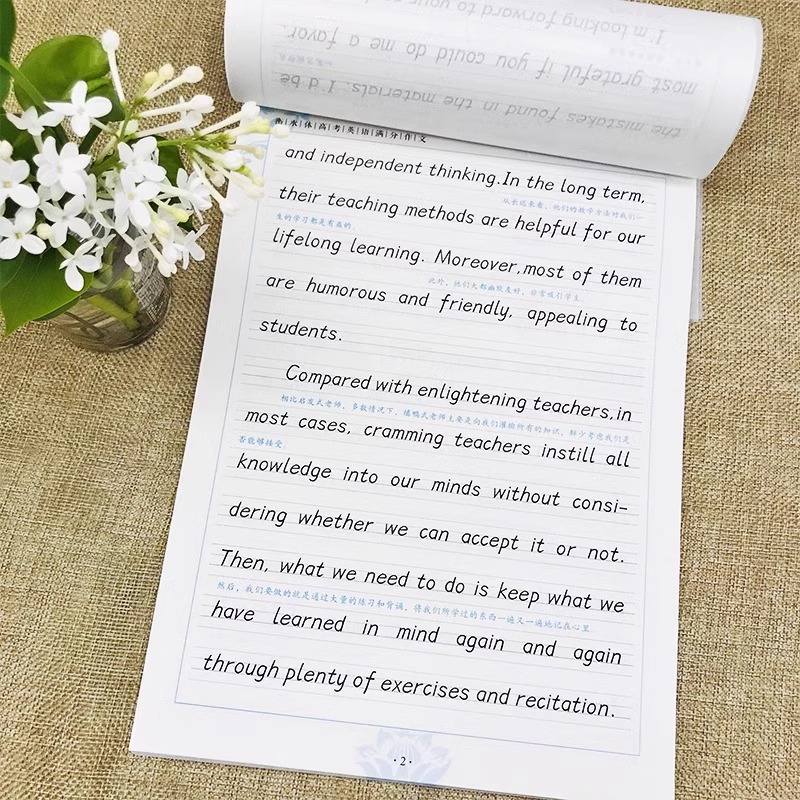 I'm looking forward to your
most grateful if you could do me a favor.
the mistakes found in the materials. I'd be
衡|水|体|高|考|英|语|满|分|作|文
and independent thinking.In the long term,
从长远来看，他们的教学方法对我们一
their teaching methods are helpful for our
生的学习都是有益的
lifelong learning. Moreover,most of them
此外，他们大都幽默友好，非常吸引学生
are humorous and friendly, appealing to
students.
Compared with enlightening teachers,in
相比启发式老师，多数情况下，填鸭式老师主要是向我们灌输所有的知识，鲜少考虑我们是
most cases, cramming teachers instill all
否能够接受
knowledge into our minds without consi-
dering whether we can accept it or not.
Then, what we need to do is keep what we
然后，我们要做的就是通过大量的练习和背诵，将我们所学过的东西一遍又一遍地记在心里
have learned in mind again and again
through plenty of exercises and recitation.
·2·